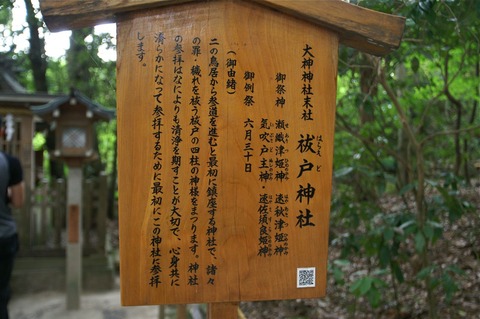 大神神社末社 祓戸神社
はらえど
御祭神 瀬織津姫神 速秋津姫神
気吹戸主神・速佐須良姫神
御例祭 六月三十日
(御由緒)
二の鳥居から参道を進むと最初に鎮座する神社で、諸々
の罪・穢れを祓う祓戸の四柱の神様をまつります。神社
の参拝はなによりも清浄を期すことが大切で、心身共に
清らかになって参拝するために最初にこの神社に参拝
します。